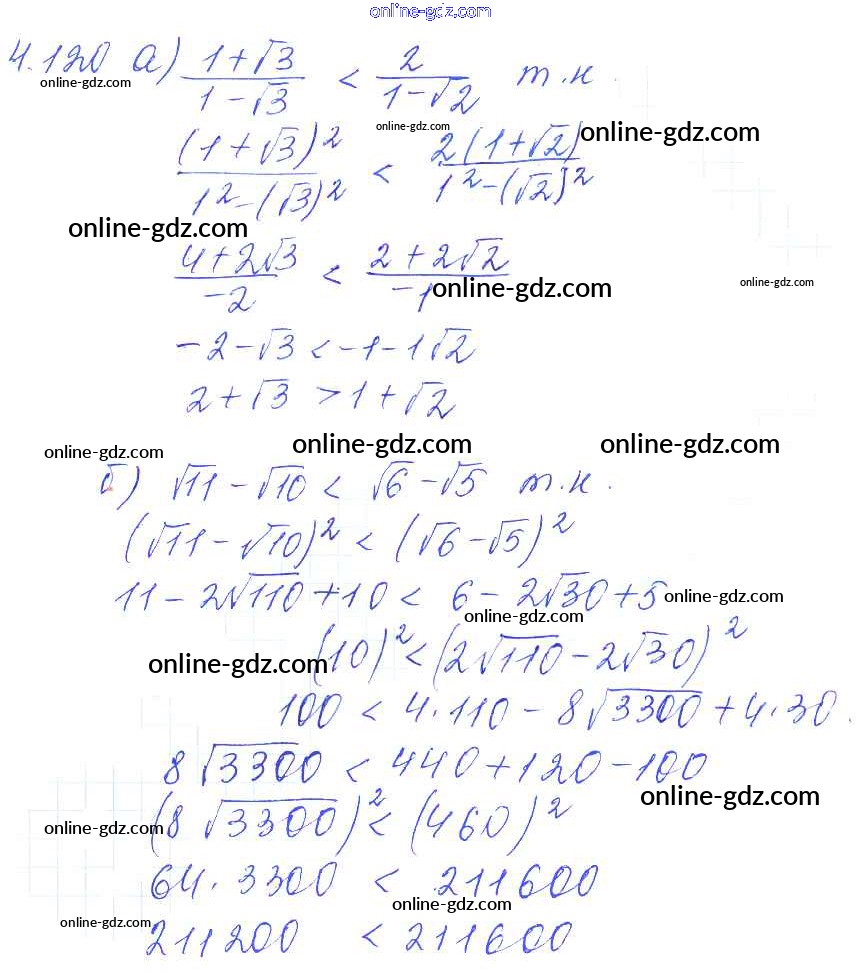 online-gdz.com
4.120 а) (1+√3)/(1-√3) < 2/(1-√2) т.к.
online-gdz.com online-gdz.com online-gdz.com
(1+√3)²/(1²-(√3)²) < 2(1+√2)/(1²-(√2)²)
online-gdz.com
(4+2√3)/(-2) < (2+2√2)/(-1)
online-gdz.com online-gdz.com
-2-√3 < -1-1√2
2+√3 > 1+√2
online-gdz.com online-gdz.com online-gdz.com
б) √11-√10 < √6-√5 т.к.
(√11-√10)² < (√6-√5)²
11-2√110+10 < 6-2√30+5
online-gdz.com
online-gdz.com
(10)² < (2√110-2√30)²
online-gdz.com
100 < 4·110-8√3300+4·30.
8√3300 < 440+120-100
online-gdz.com
(8√3300)² < (460)²
online-gdz.com
64·3300 < 211600
online-gdz.com
online-gdz.com
211200 < 211600